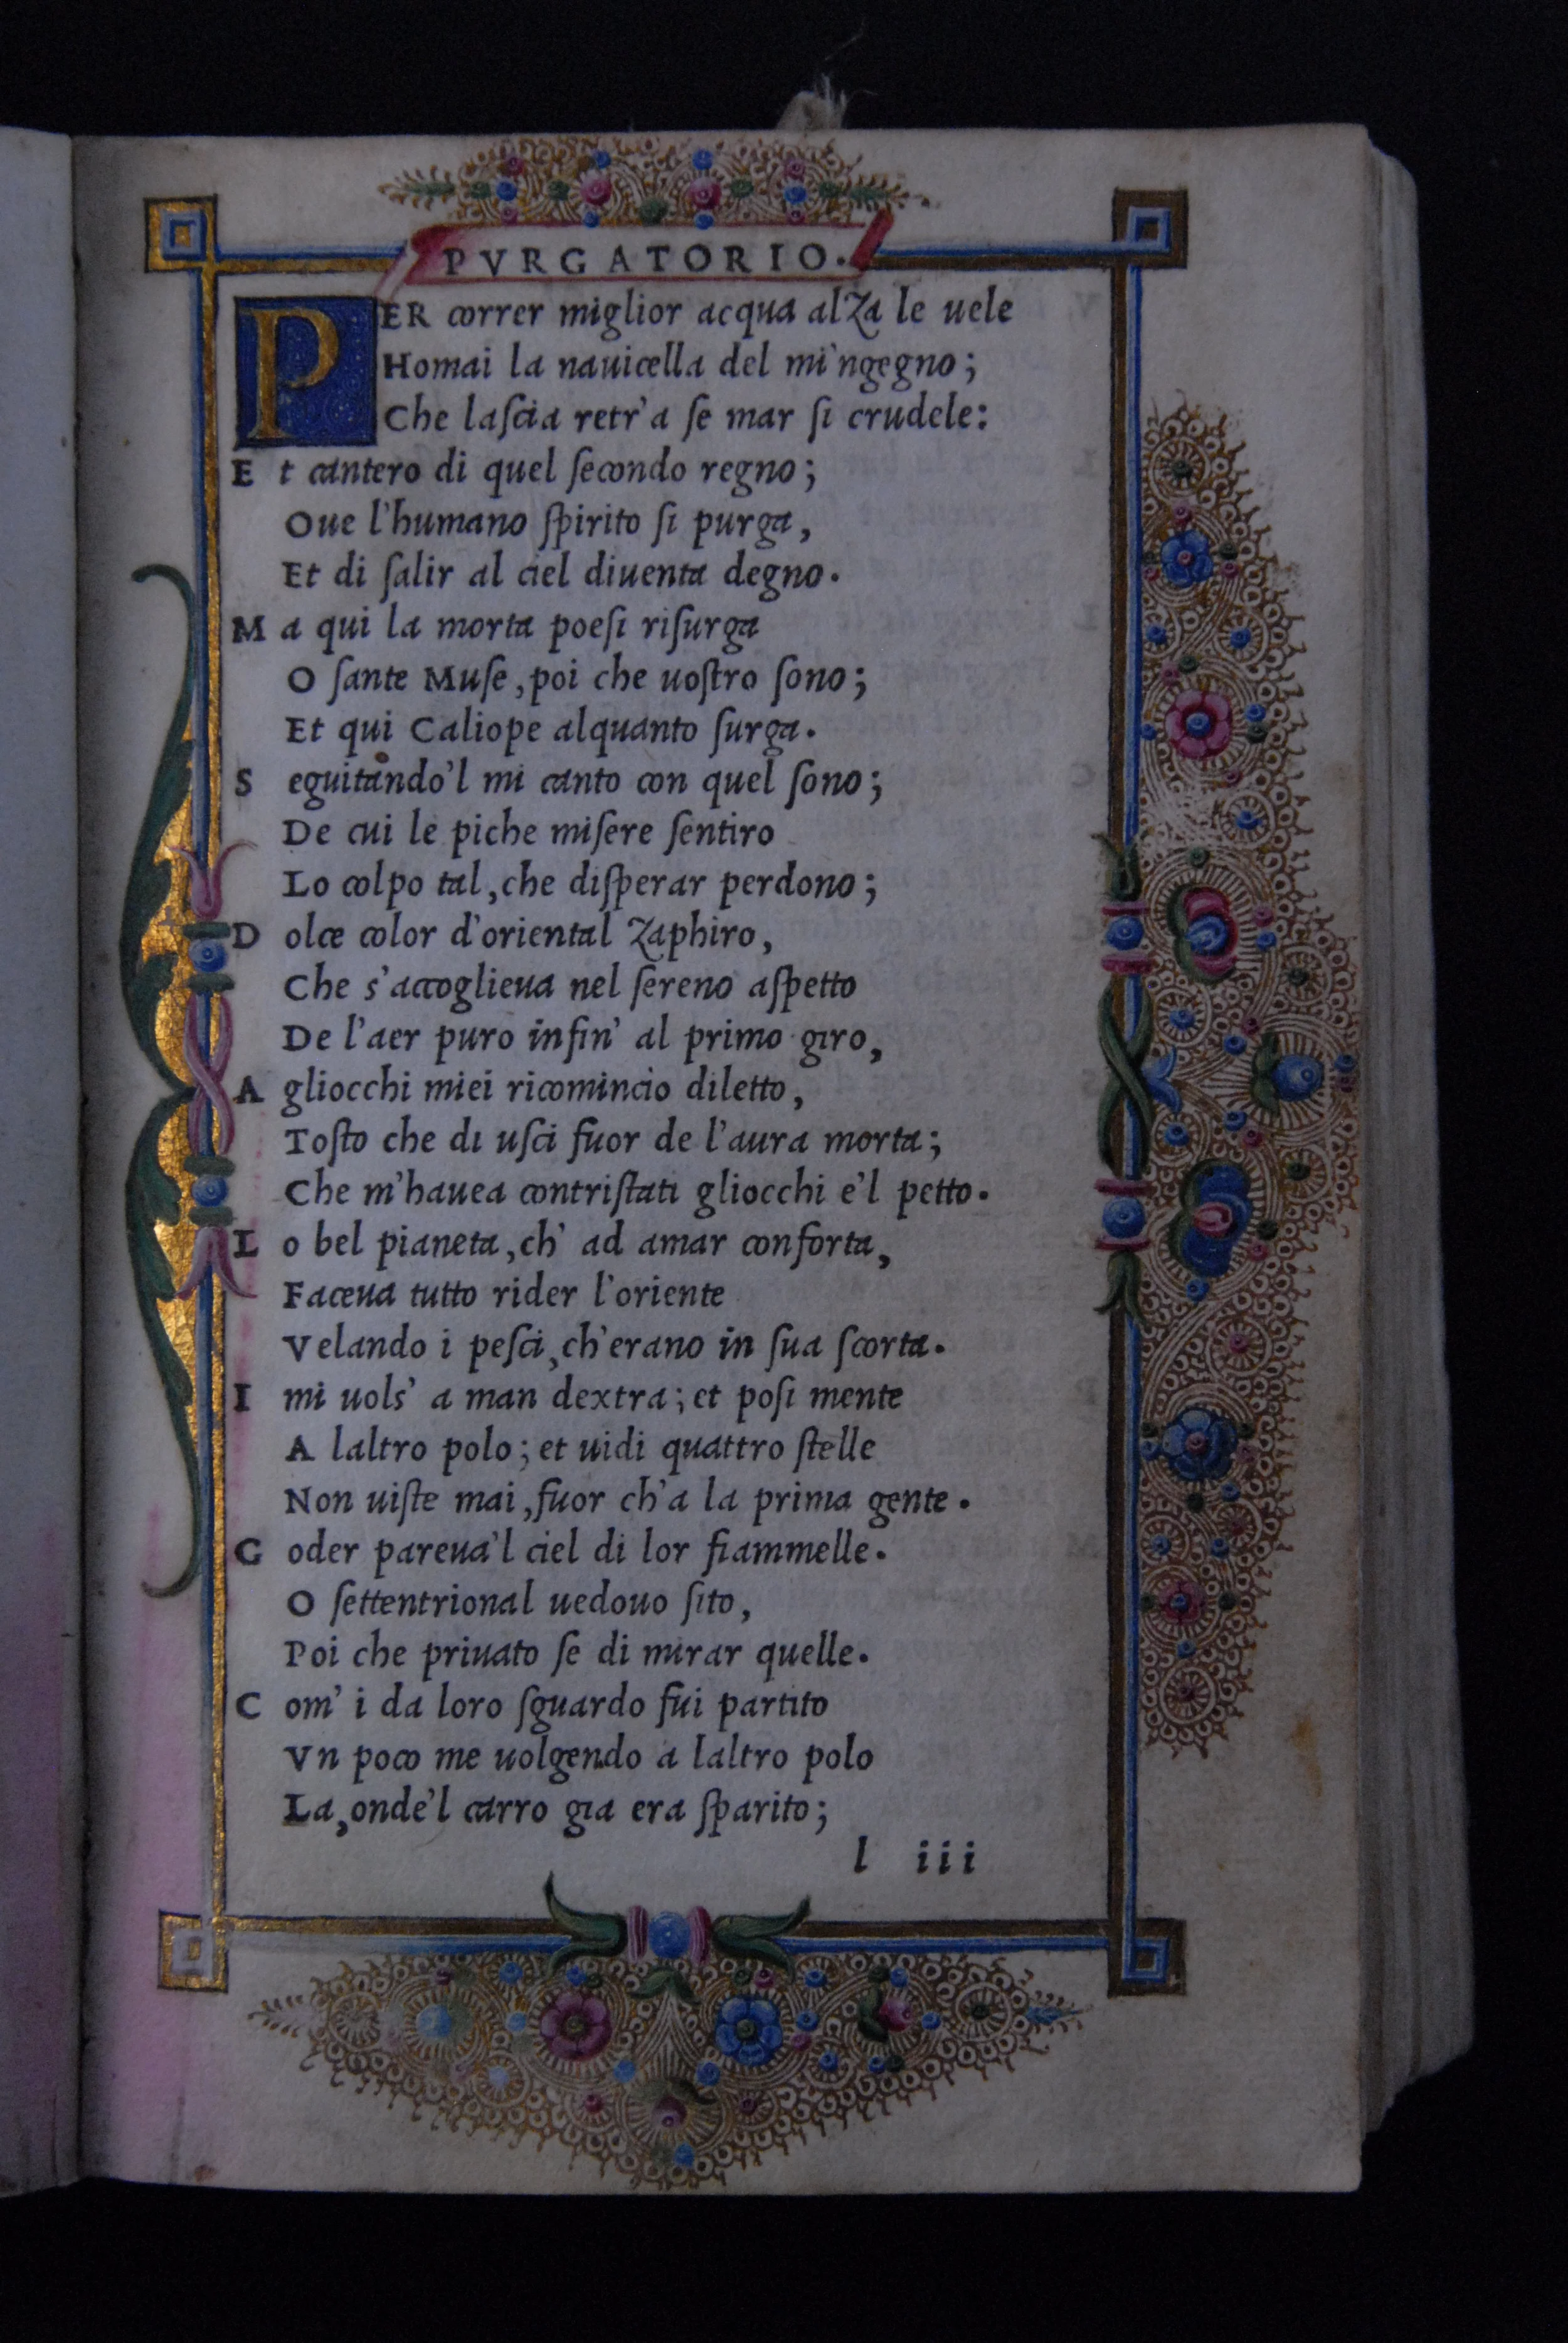 PVRGATORIO.
PER correr miglior acqua alza le uele
Homai la nauicella del mi'ngegno;
Che laſcia retr'a ſe mar ſi crudele:
E t cantero di quel ſecondo regno;
Oue l'humano ſpirito ſi purga,
Et di ſalir al ciel diuenta degno.
M a qui la morta poeſi riſurga
O ſante Muſe, poi che uoſtro ſono;
Et qui Caliope alquanto ſurga.
S eguitando'l mi canto con quel ſono;
De cui le piche miſere ſentiro
Lo colpo tal, che diſperar perdono;
D olce color d'oriental zaphiro,
Che s'accoglieua nel ſereno aſpetto
De l'aer puro infin' al primo giro,
A gliocchi miei ricomincio diletto,
Toſto che di uſci fuor de l'aura morta;
Che m'hauea contriſtati gliocchi e'l petto.
L o bel pianeta, ch' ad amar conforta,
Faceua tutto rider l'oriente
Velando i peſci, ch'erano in ſua ſcorta.
I mi uols' a man dextra; et poſi mente
A laltro polo; et uidi quattro ſtelle
Non uiſte mai, fuor ch'a la prima gente.
G oder pareua'l ciel di lor fiammelle.
O ſettentrional uedouo ſito,
Poi che priuato ſe di mirar quelle.
C om' i da loro ſguardo fui partito
Vn poco me uolgendo a laltro polo
La, onde'l carro gia era ſparito;
l iii